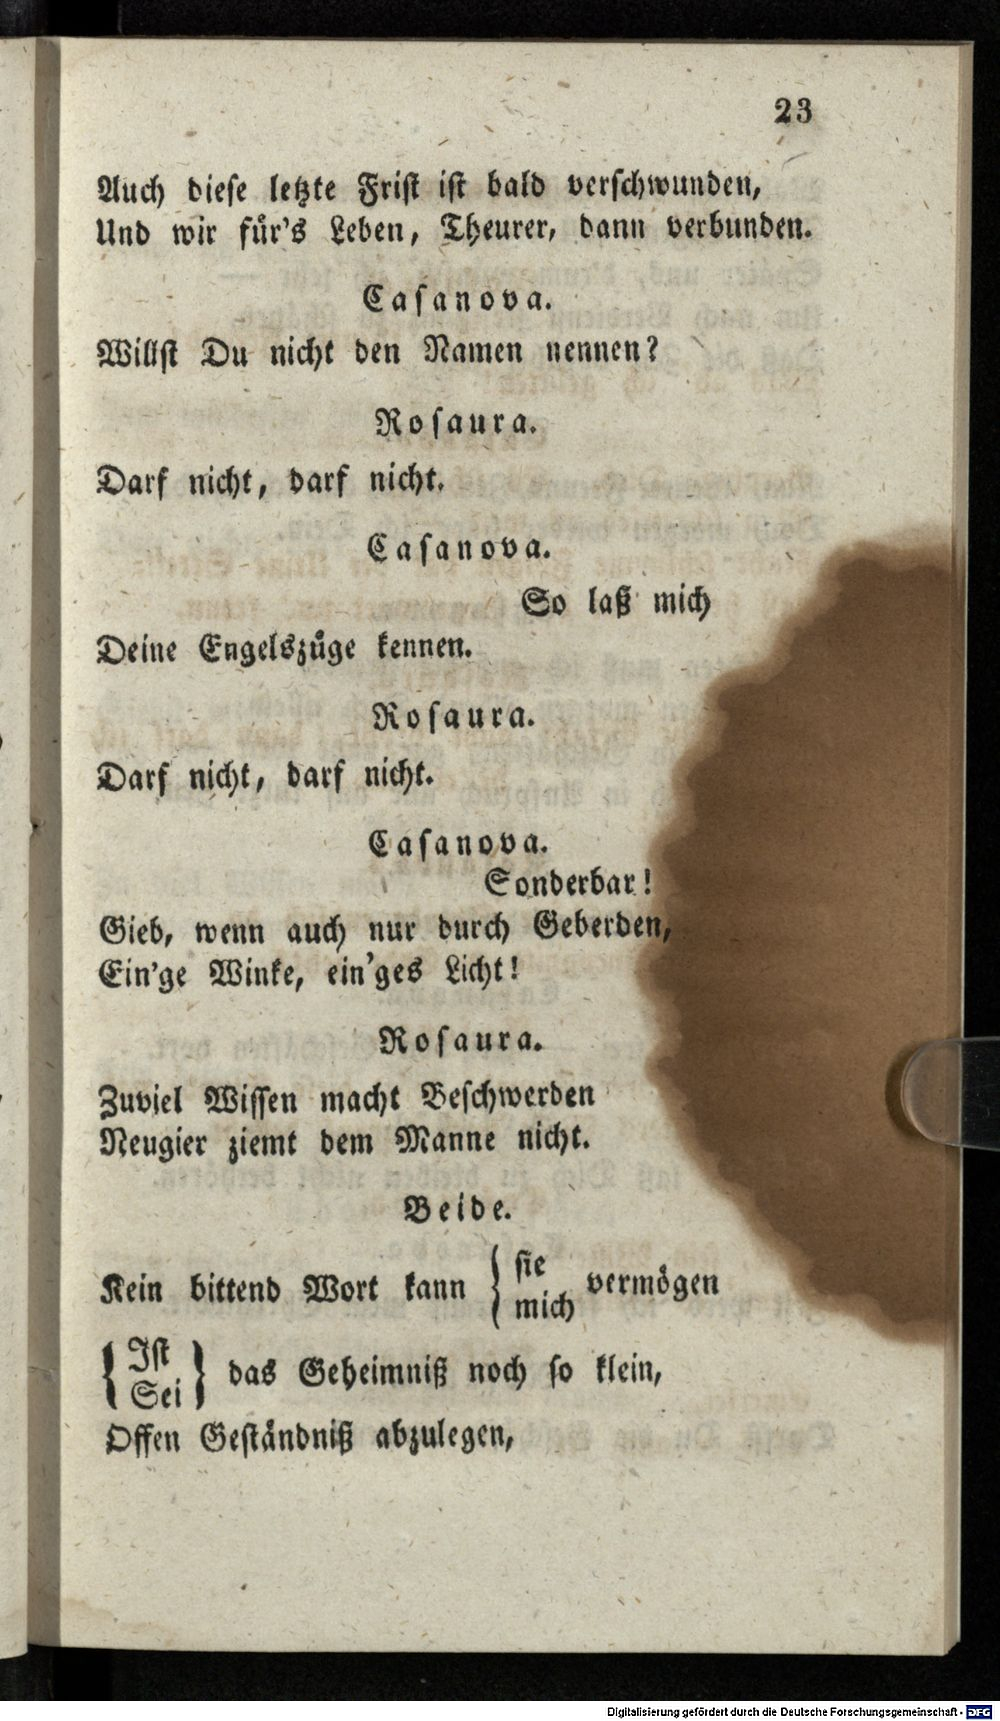 23
Auch diese letzte Frist ist bald verschwunden,
Und wir für's Leben, Theurer, dann verbunden.
Casanova.
Willst Du nicht den Namen nennen?
Rosaura.
Darf nicht, darf nicht.
Casanova.
So laß mich
Deine Engelszüge kennen.
Rosaura.
Darf nicht, darf nicht.
Casanova.
Sonderbar!
Gieb, wenn auch nur durch Geberden,
Ein'ge Winke, ein'ges Licht!
Rosaura.
Zuviel Wissen macht Beschwerden
Neugier ziemt dem Manne nicht.
Beide.
Kein bittend Wort kann { sie vermögen
mich
{ Ist } das Geheimniß noch so klein,
Sei
Offen Geständniß abzulegen,
Digitalisierung gefördert durch die Deutsche Forschungsgemeinschaft - DFG